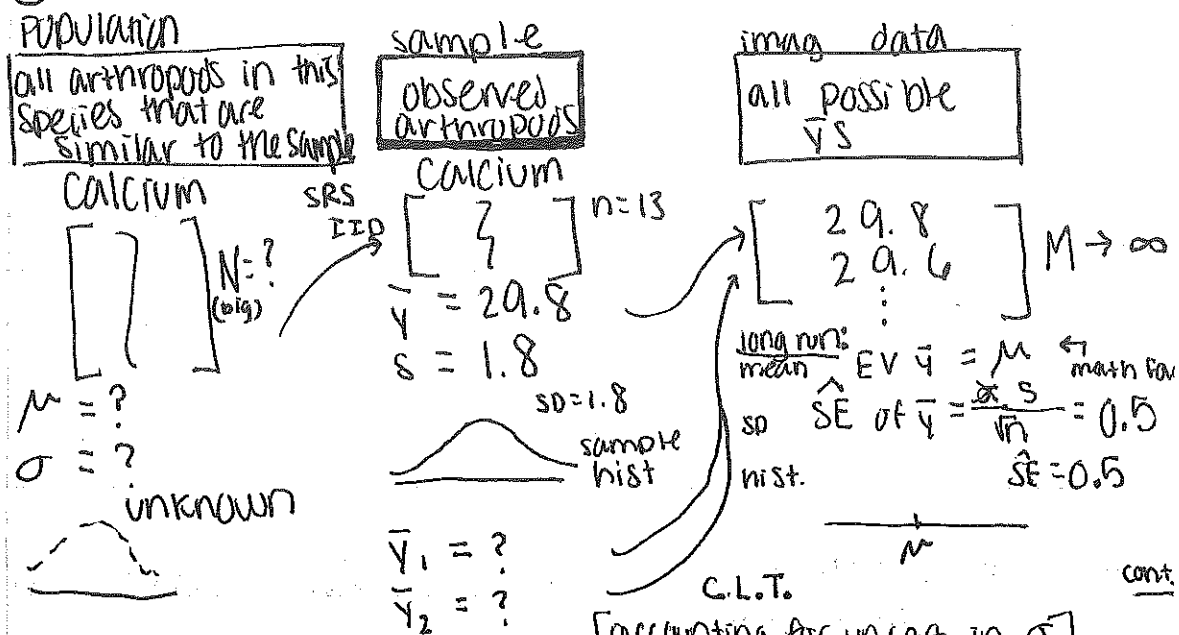 Population
all arthropods in this
species that are
similar to the sample
Calcium
N=?
(big)
μ = ?
σ = ?
unknown
SRS
IID
sample
observed
arthropods
Calcium
n=13
ȳ = 29.8
s = 1.8
SD=1.8
sample
hist
ȳ₁ = ?
ȳ₂ = ?
imag data
all possible
ȳs
29.8
29.6
⋮
M → ∞
long run:
mean EV ȳ = μ ←
math
SD ŜE of ȳ = s/√n = 0.5
hist. ŜE = 0.5
μ
C.L.T.
cont.
[accounting for uncer. in σ]